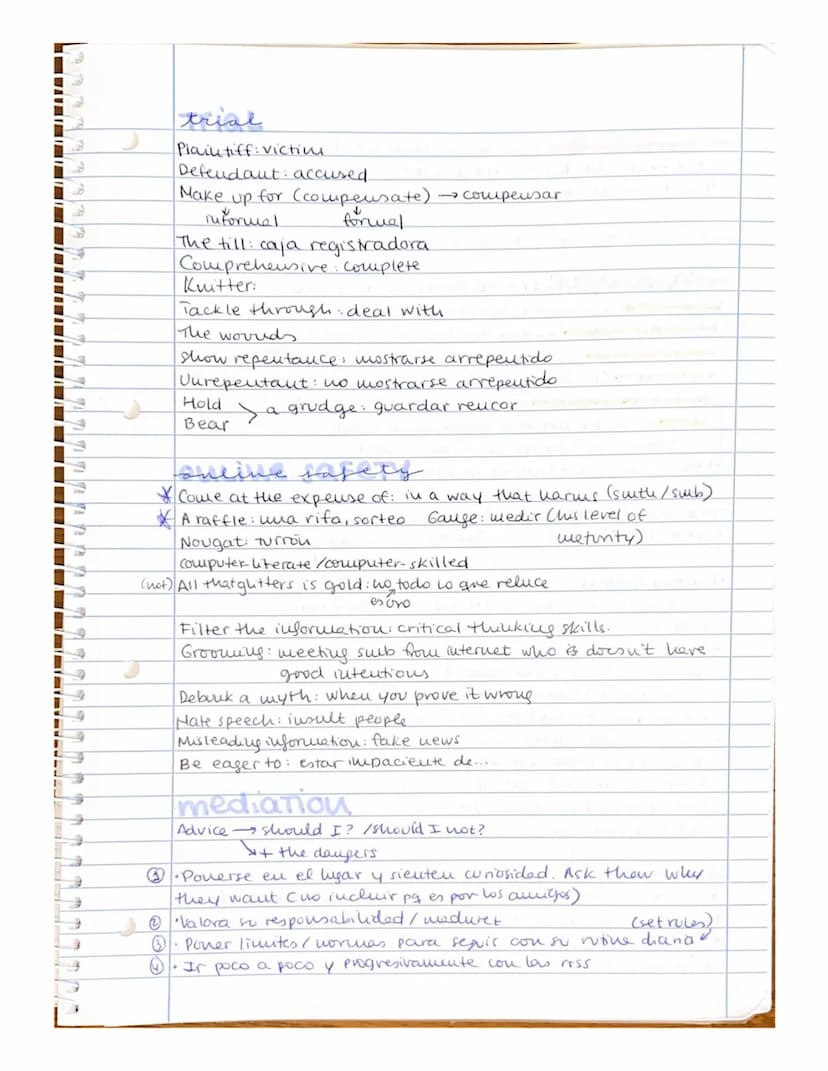 trial
Plaintiff: victim
Defendant: accused
Make up for (compensate) → compensar
informal formal
The till: caja registradora
Comprehensive: complete
Knitter:
Tackle through: deal with
The wounds
Show repentance: mostrarse arrepentido
Unrepentant: no mostrarse arrepentido
Hold
Bear > a grudge: guardar rencor
online safety
Come at the expense of: in a way that harms (smth/smb)
A raffle: una rifa, sorteo Gauge: medir (his level of
Nougat: turrón meturity)
Computer-literate/computer-skilled
(not) All that glitters is gold: no todo lo que reluce
es oro
Filter the information: critical thinking skills.
Grooming: meeting smb from internet who is doesn't have
good intentions
Debunk a myth: when you prove it wrong
Hate speech: insult people
Misleading information: fake news
Be eager to: estar impaciente de...
mediation
Advice → should I? /should I not?
+ the dangers
① · Ponerse en el lugar y sienten curiosidad. Ask them why
they want (no incluir pq es por los amigos)
② · Valora su responsabilidad / madurez (set rules)
③ · Poner limites / normas para seguir con su rutina diaria
④ · Ir poco a poco y progresivamente con las rrss